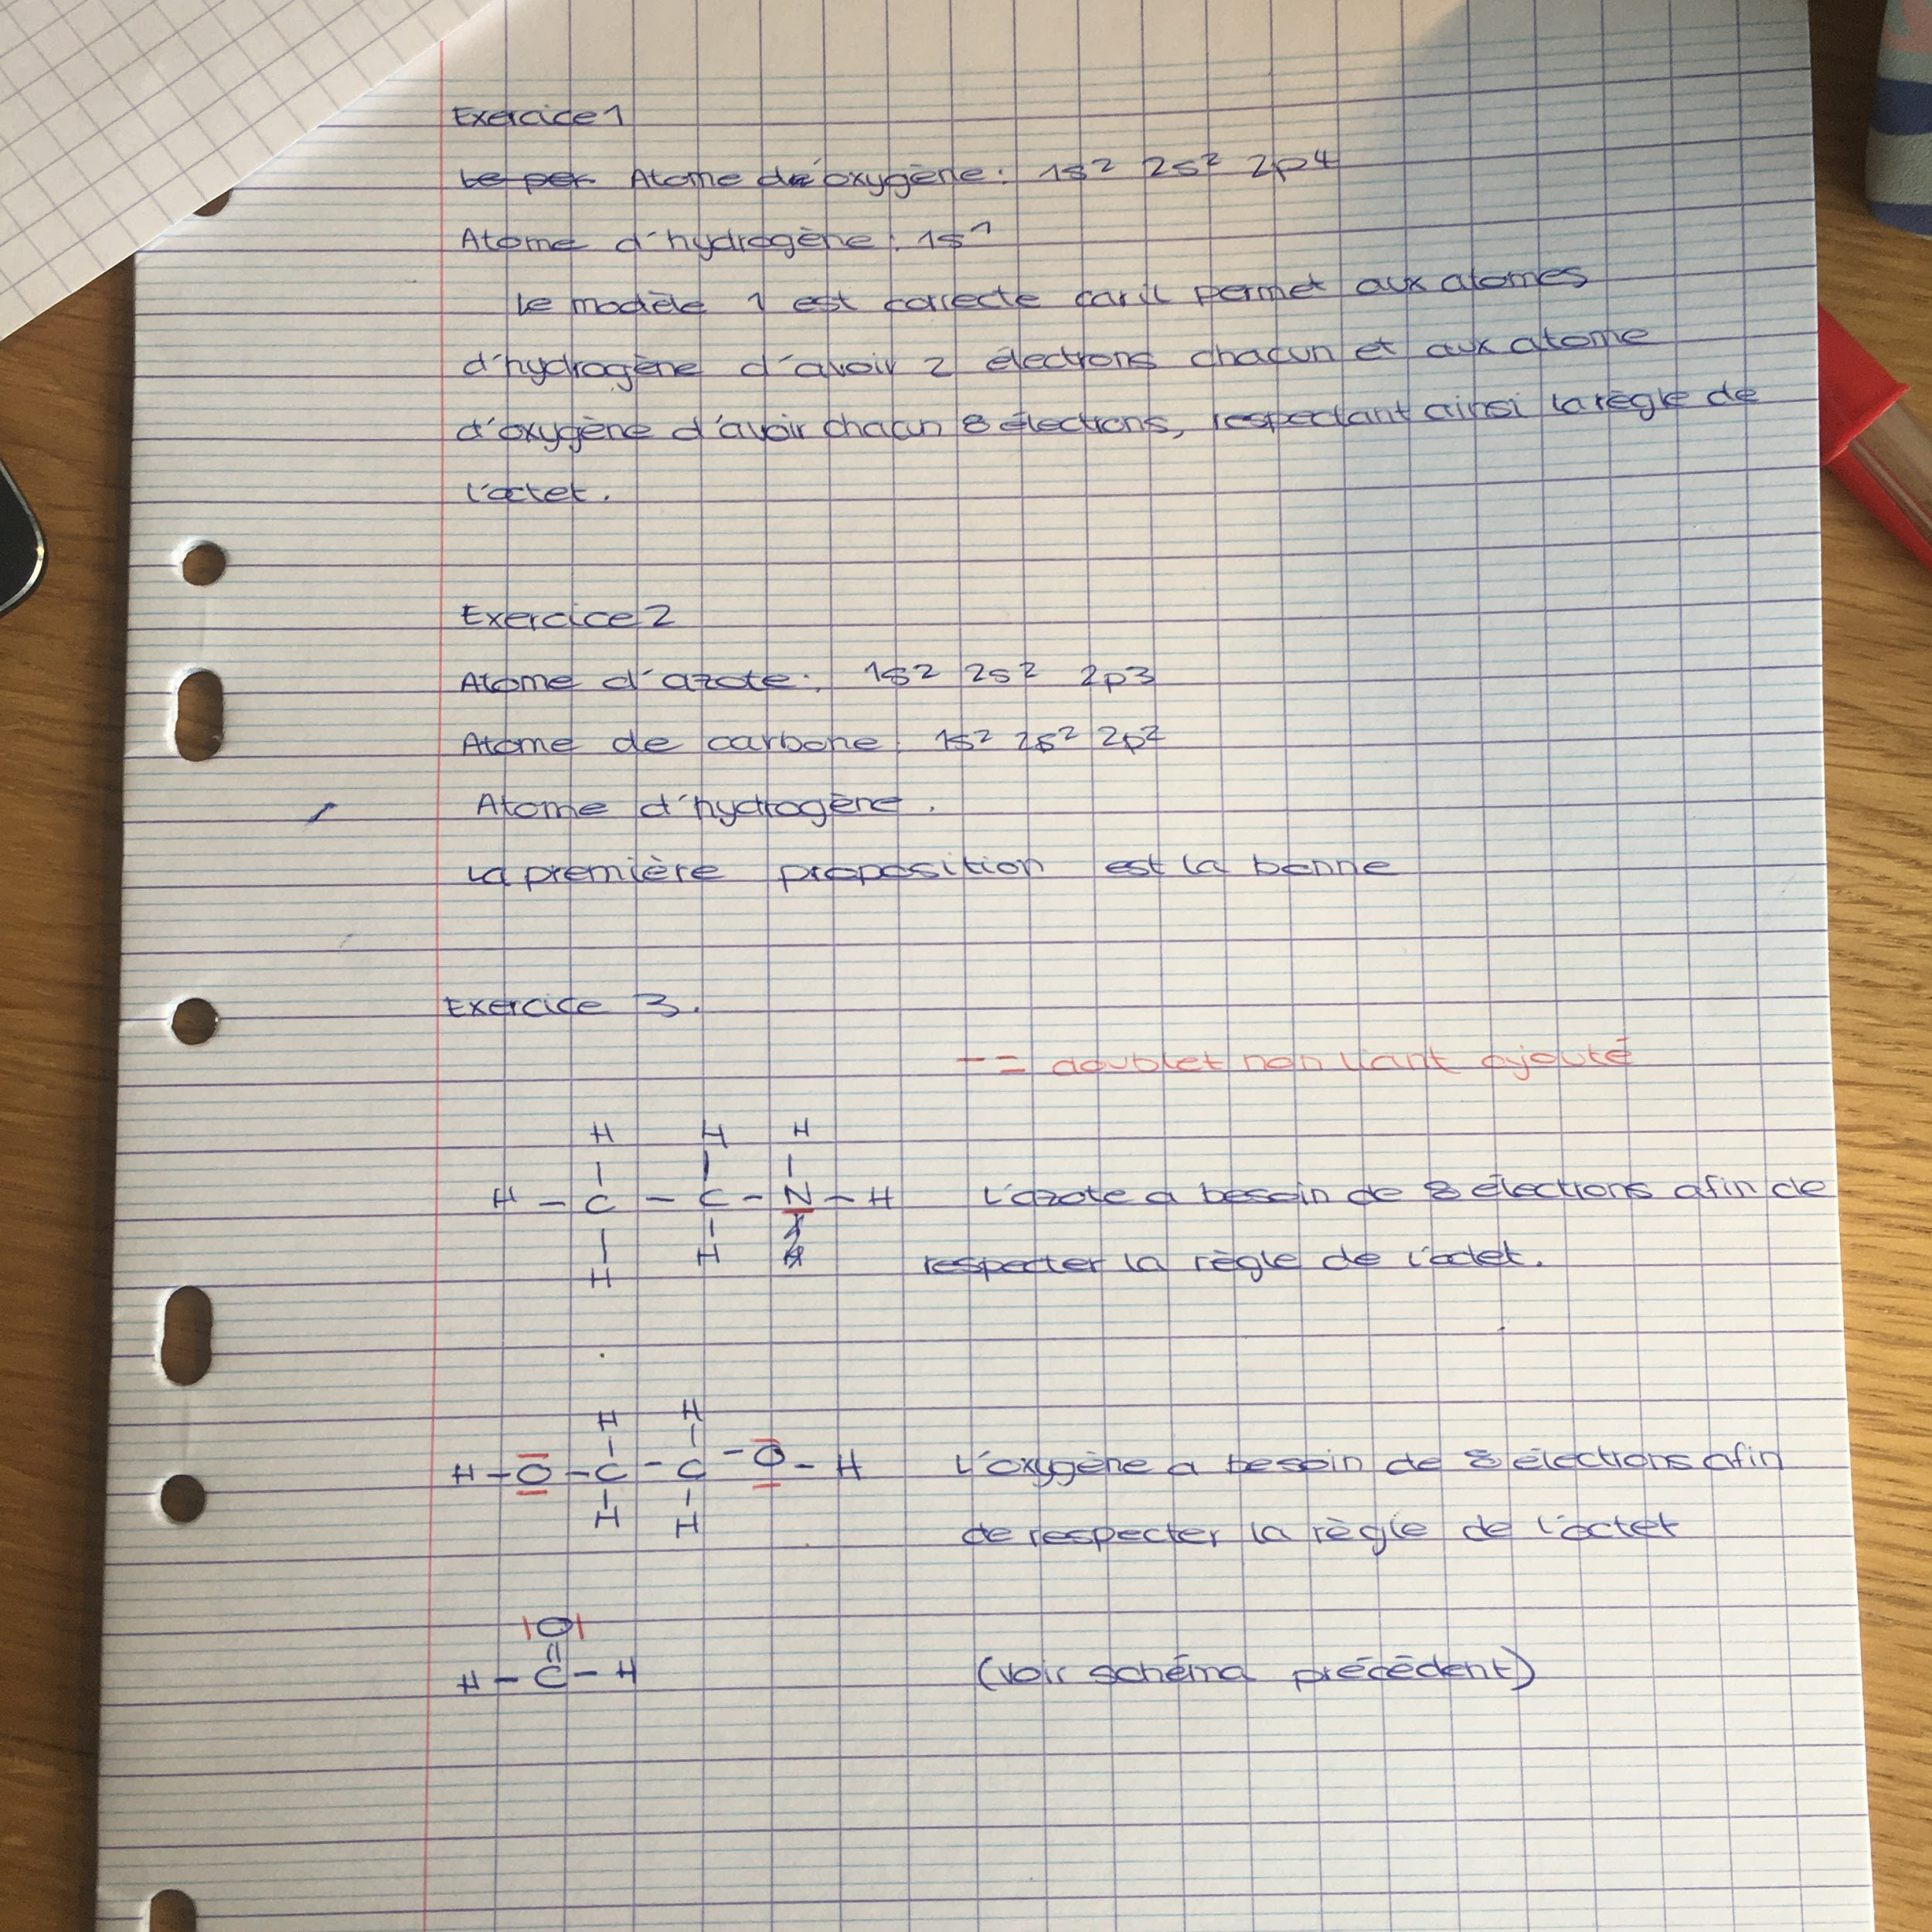 Exercice 1
Le per Atome d'oxygène : 1s² 2s² 2p⁴
Atome d'hydrogène : 1s¹
Le modèle 1 est correcte car il permet aux atomes
d'hydrogène d'avoir 2 électrons chacun et aux atome
d'oxygène d'avoir chacun 8 électrons, respectant ainsi la règle de
l'octet.
Exercice 2
Atome d'azote : 1s² 2s² 2p3
Atome de carbone : 1s² 2s² 2p²
Atome d'hydrogène.
La première proposition est la bonne
Exercice 3.
— = doublet non liant ajouté
H H H
H – C – C – N – H L'azote a besoin de 8 électrons afin de
H H respecter la règle de l'octet.
H H
H – O – C – C – O – H L'oxygène a besoin de 8 électrons afin
H H de respecter la règle de l'octet
|O|
H – C – H (voir schéma précédent)